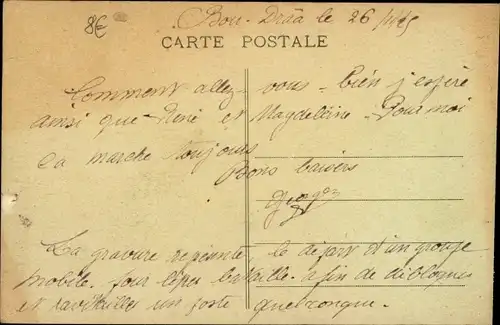 8€
Bou-Drâa le 26
CARTE POSTALE
Comment allez-vous - bien j'espère
ainsi que René et Magdeleine - Pour moi
ça marche toujours
Bons baisers
La gravure représente le départ d'un groupe
mobile - pour bataille - afin de débloquer
et ravitailler un poste quelconque.